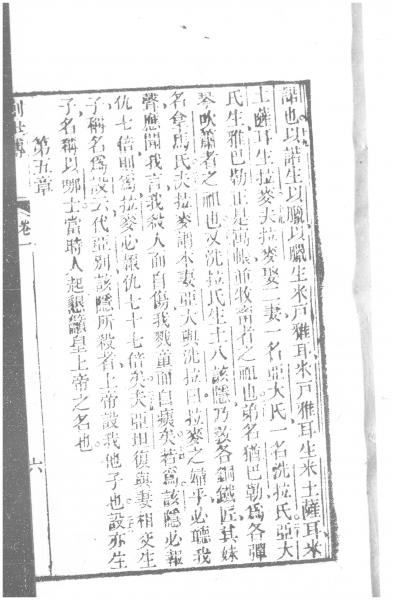 諾也以諾生以臘以臘生米戶雅耳米戶雅耳生米土薩耳米
土薩耳生拉麥夫拉麥娶二妻一名亞大氏一名洗拉氏亞大
氏生雅巴勒正是萬帳而牧畜者之祖也弟名猶巴勒為各彈
琴吹簫者之祖也又洗拉氏生土八該隱乃教各銅鐵匠其妹
名拿馬氏夫拉麥謂本妻亞大與洗拉曰拉麥之婦乎必聽我
聲應聞我言我殺人而自傷我戮童而自痍矣若為該隱必報
仇七倍則為拉麥必報仇七十七倍矣夫亞坦復與妻相交生
子稱名為設云代亞別該隱所殺者上帝設我他子也設亦生
子名稱以哪士當時人起懇籲皇上帝之名也
第五章
創世傳
卷一
六